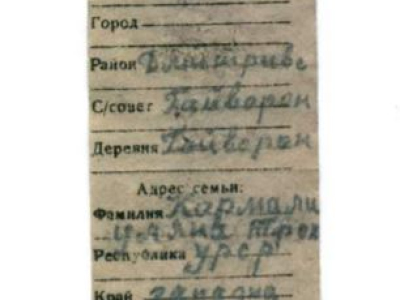 Город
Район Дмитриве
С/совет Гайворон
Деревня Гайворон
Адрес семьи:
Фамилия Кармали
Республика УРСР
Край западна